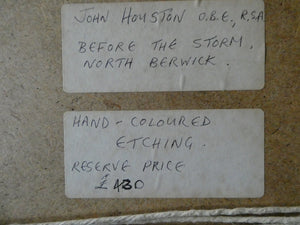 JOHN HOUSTON O.B.E., R.S.A
BEFORE THE STORM,
NORTH BERWICK.
HAND-COLOURED
ETCHING.
RESERVE PRICE
£